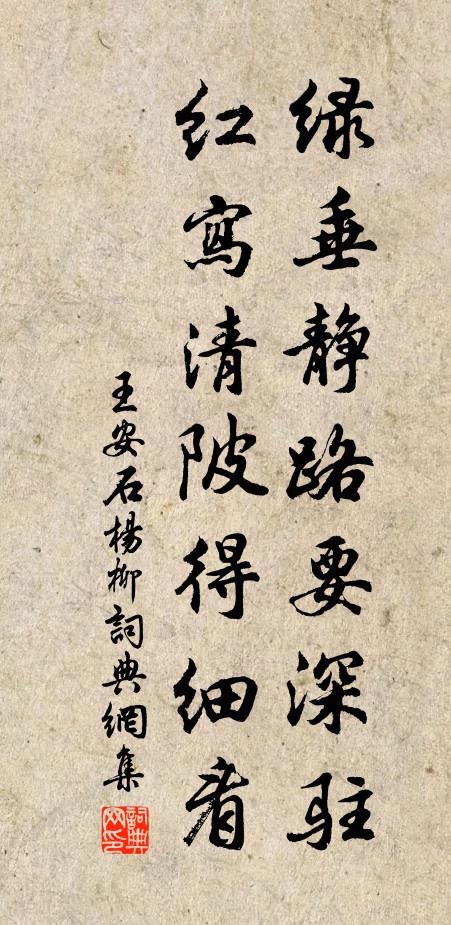 绿垂静路要深驻
红寫清陂得细看
王安石楊柳詞典網集
詞典
网印